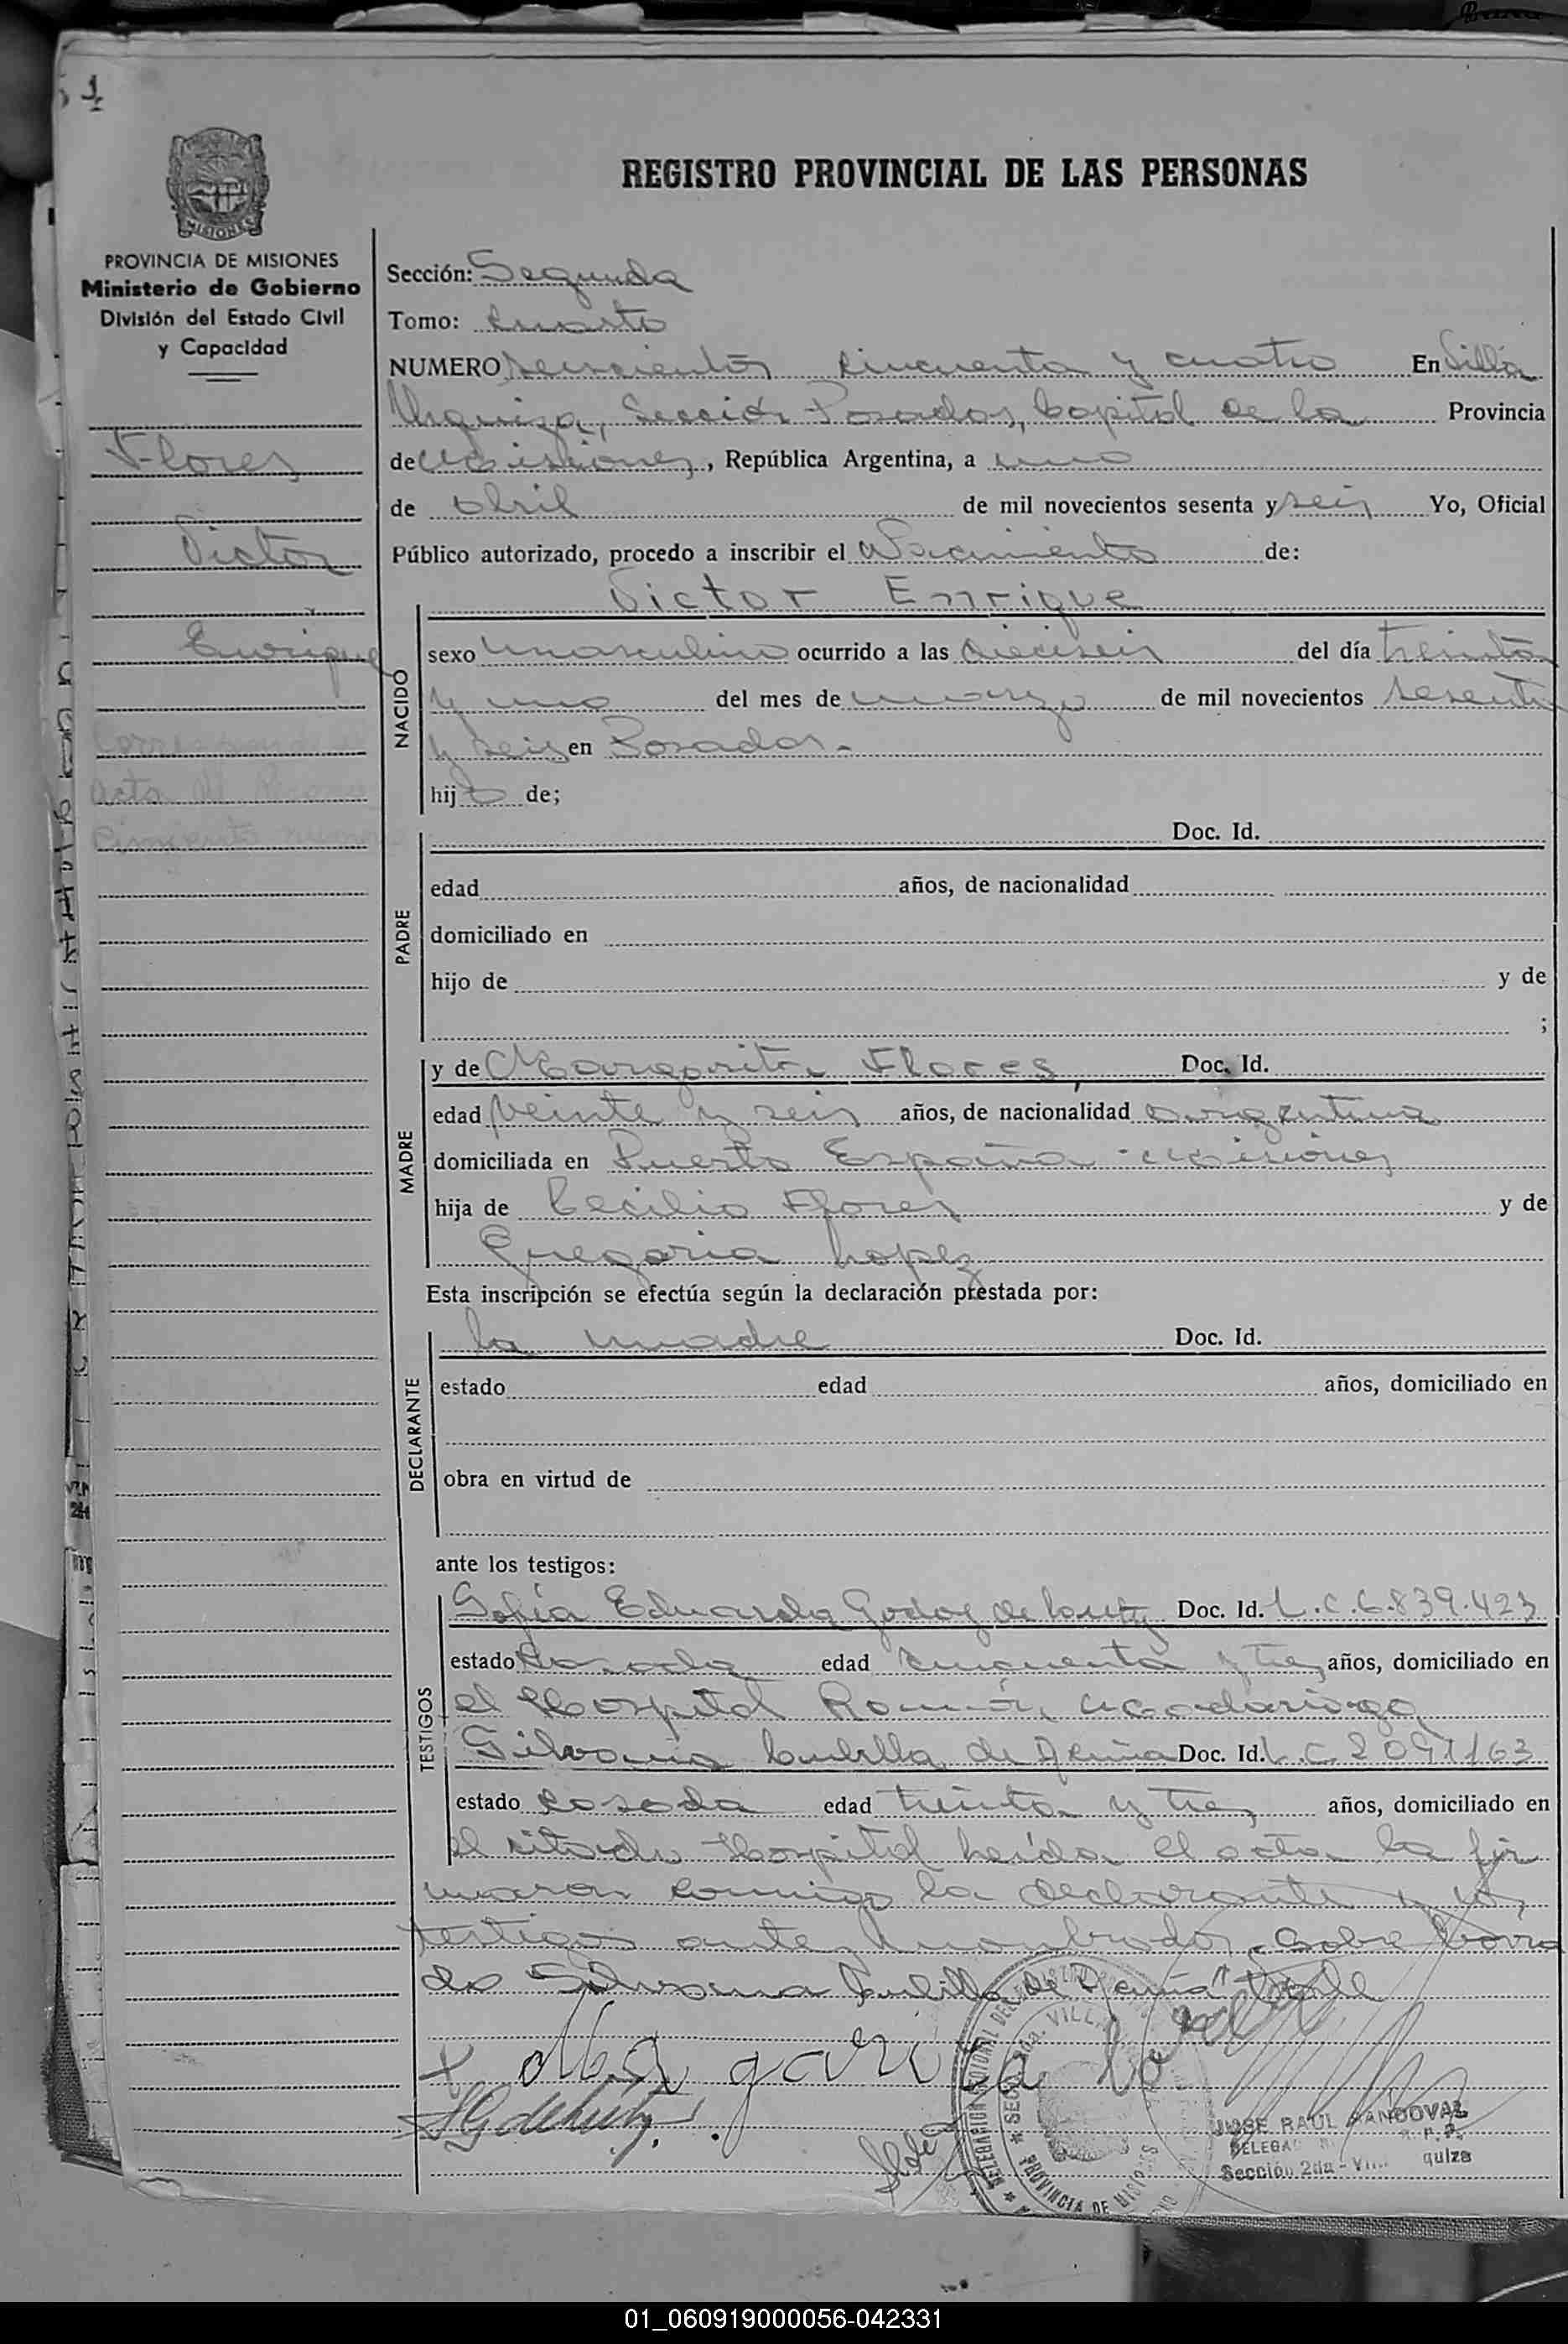 REGISTRO PROVINCIAL DE LAS PERSONAS
MISIONES
PROVINCIA DE MISIONES
Ministerio de Gobierno
División del Estado Civil
y Capacidad
Flores
Victor
Enrique
Corresponde
acta de Recono
cimiento numero
Sección: Segunda
Tomo: Cuarto
NUMERO seiscientos cincuenta y cuatro En Villa
Urquiza, Sección Posadas, Capital de la Provincia
de Misiones, República Argentina, a uno
de abril de mil novecientos sesenta y seis Yo, Oficial
Público autorizado, procedo a inscribir el Nacimiento de:
NACIDO
Victor Enrique
sexo masculino ocurrido a las dieciseis del día treinta
y uno del mes de marzo de mil novecientos sesenta
y seis en Posadas.-
hijo de;
PADRE
Doc. Id.
edad años, de nacionalidad
domiciliado en
hijo de y de
;
MADRE
y de Margarita Flores, Doc. Id.
edad veinte y seis años, de nacionalidad argentina
domiciliada en Puerto España - Misiones
hija de Cecilio Flores y de
Gregoria Lopez
Esta inscripción se efectúa según la declaración prestada por:
DECLARANTE
la madre Doc. Id.
estado edad años, domiciliado en
obra en virtud de
ante los testigos:
TESTIGOS
Sofía Eduarda Godoy de Doc. Id. L.C.6.839.423
estado casada edad cincuenta y tres años, domiciliado en
el Hospital Ramón Madariaga
Silvana Cubilla de Doc. Id. L.C 2091163
estado casada edad treinta y tres años, domiciliado en
el citado Hospital leída el acta la fir
maron conmigo la declarante y los
testigos ante nombrados. Sobre borra
do Silvana Cubilla de Vale
PROVINCIA DE MISIONES
JOSE RAUL SANDOVAL
Sección 2da -
quiza
01_060919000056-042331